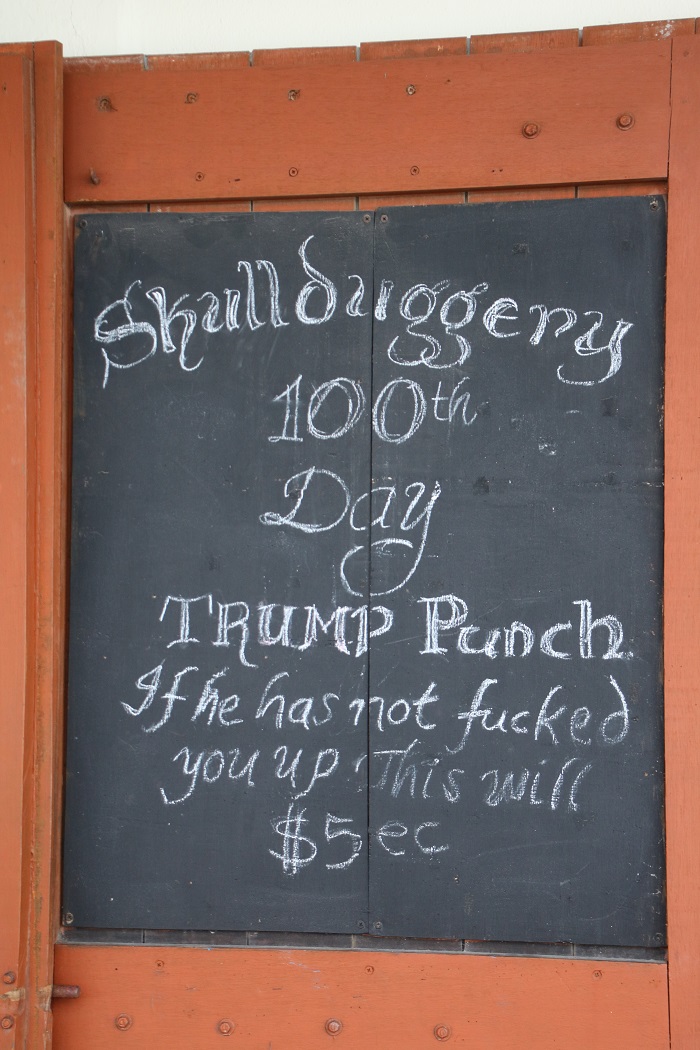 Skullduggery
100th
Day
TRUMP Punch
If he has not fucked
you up This will
$5 ec